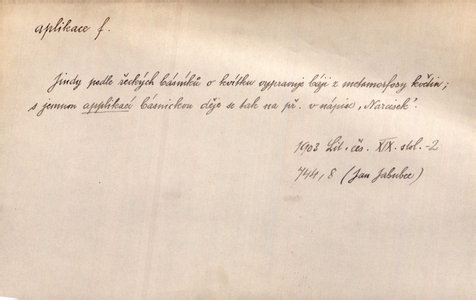 aplikace f.
Jindy podle řeckých básníků o kvítku vypravuje báji z metamorfosy květin;
s jemnou applikací básnickou děje se tak na př. v nápise „Narcisek“.
1903 Lit. čes. XIX. stol.-2
744, 8 (Jan Jakubec)